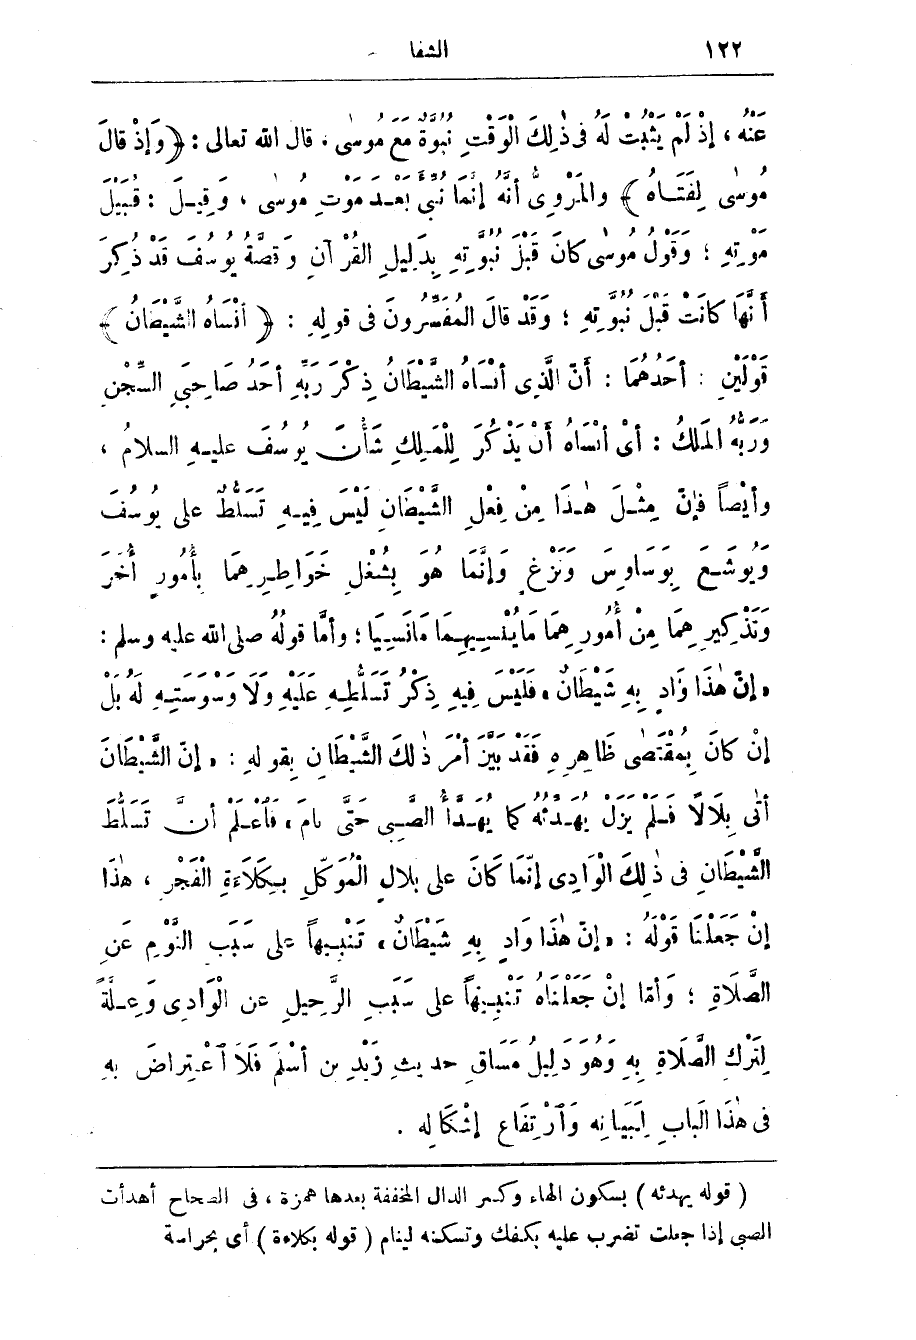 ١٢٢ الشفا
عَنْهُ ، إِذْ لَمْ يَثْبُتْ لَهُ فى ذٰلِكَ الْوَقْتِ نُبُوَّةٌ مَعَ مُوسٰى ، قال الله تعالى : ﴿ وَإِذْ قالَ
مُوسٰى لِفَتَـاهُ ﴾ والمَرْوِىُّ أنَّهُ إنَّمَا نُبِّئَ بَعـدَ مَوْتِ مُوسٰى ، وَقِيـلَ : قُبَيْلَ
مَوْتِهِ ؛ وَقَوْلُ مُوسٰى كانَ قَبْلَ نُبُوَّتِهِ بِدَلِيلِ القُرْآنِ وَقصَّةُ يُوسُفَ قَدْ ذُكِرَ
أَنَّهَا كانَتْ قَبْلَ نُبُوَّتِهِ ؛ وَقَدْ قالَ المُفَسِّرُونَ فى قولِهِ : ﴿ أنْسَاهُ الشَّيْطَانُ ﴾
قَوْلَيْنِ : أحَدُهُمَا : أَنَّ الَّذِى أنْسَاهُ الشَّيْطَانُ ذِكْرَ رَبِّهِ أحَدُ صَاحِبَىِ السِّجْنِ
وَرَبُّهُ المَلِكُ : أىْ أنْسَاهُ أَنْ يَذْكُرَ لِلْمَـلِكِ شَأْنَ يُوسُفَ عليـهِ السلامُ ،
وأيْضاً فَإِنَّ مِثْـلَ هٰـذَا مِنْ فِعْلِ الشَّيْطَانِ لَيْسَ فِيـهِ تَسَلُّطٌ على يُوسُفَ
وَيُوشَـعَ بِوَسَاوِسَ وَنَزْغٍ وَإِنَّمَا هُوَ بِشُغْلِ خَوَاطِـرِهِمَا بِأُمُورٍ أُخَرَ
وَتَذْكِيرِهِمَا مِنْ أُمُورِهِمَا مَا يُنْسِـيهِمَا مَا نَسِـيَا ؛ وأمَّا قولُهُ صلى الله عليه وسلم :
« إنَّ هٰذَا وَادٍ بِهِ شَيْطَانٌ » فَلَيْسَ فِيهِ ذِكْرُ تَسَلُّطِـهِ عَلَيْهِ وَلَا وَسْوَسَتِـهِ لَهُ بَلْ
إنْ كانَ بِمُقْتَضٰى ظَاهِرِهِ فَقَدْ بَيَّنَ أمْرَ ذٰلِكَ الشَّيْطَانِ بِقولِهِ : « إنَّ الشَّيْطَانَ
أتٰى بِلَالًا فَـلَمْ يَزَلْ يُهَـدِّئُهُ كما يُهَـدَّأُ الصَّبِىُّ حَتَّى نامَ » فَاعْلَمْ أنَّ تَسَلُّطَ
الشَّيْطَانِ فى ذٰلِكَ الْوَادِى إنَّمَا كَانَ على بِلَالٍ الْمُوَكَّلِ بِـكَلَاءَةِ الْفَجْرِ ، هٰذَا
إنْ جَعَلْنَا قَوْلَهُ : « إنَّ هٰذَا وَادٍ بِهِ شَيْطَانٌ » تَنْبِـيهاً على سَبَبِ النَّوْمِ عَنِ
الصَّلَاةِ ؛ وَأمَّا إنْ جَعَلْنَاهُ تَنْبِـيهاً على سَبَبِ الرَّحِيلِ عن الْوَادِى وَعِـلَّةً
لِتَرْكِ الصَّلَاةِ بِهِ وَهُوَ دَلِيلُ مَسَاقِ حديثِ زَيْدِ بن أسْلَمَ فَلَا ٱعْـتِراضَ بِهِ
فى هٰذَا الْبابِ لِبَيَانِهِ وَٱرْتِفَاعِ إشْكَالِهِ .
( قوله يهدئه ) بسكون الهاء وكسر الدال المخففة بعدها همزة ، فى الصحاح أهدأت
الصبى إذا جعلت تضرب عليه بكفك وتسكنه لينام ( قوله بكلاءة ) أى بحراسة